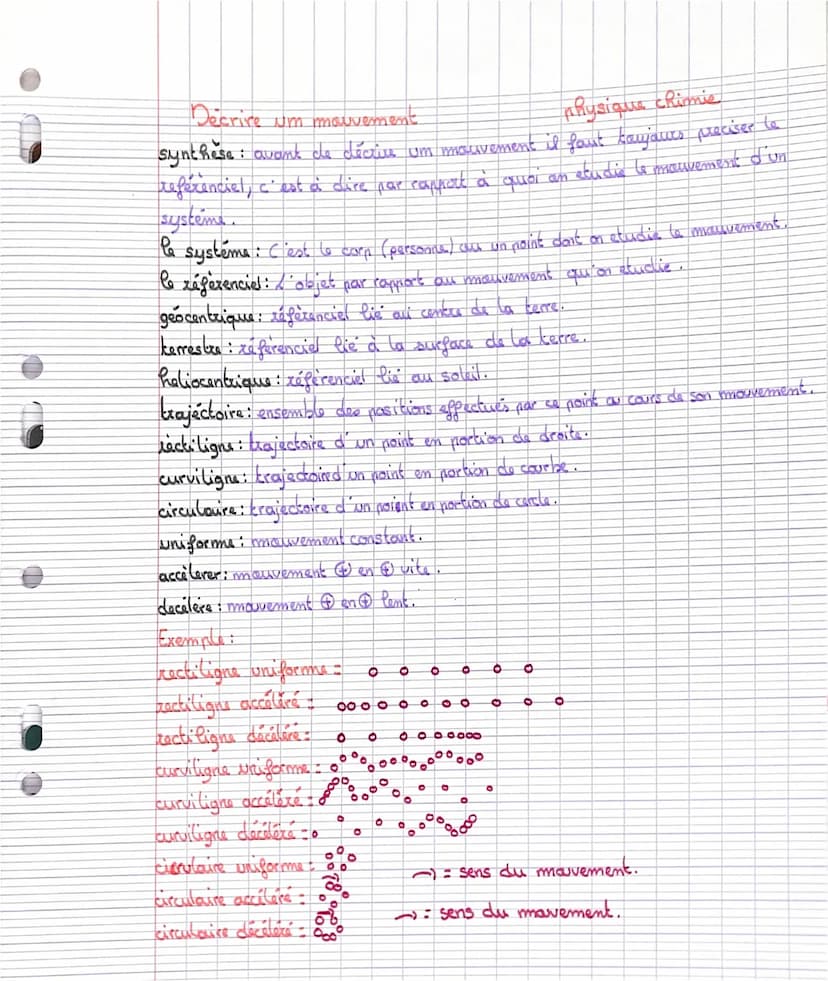 Décrire um mouvement
physique chimie
synthèse : avant de décrire um mouvement il faut toujours preciser le
referènciel, c'est à dire par rapport à quoi on etudie le mouvement d'un
système.
le système : C'est le corp (personne) ou un point dont on etudie le mouvement.
le réfèrenciel : L'objet par rapport au mouvement qu'on etudie.
géocentrique : réfèrenciel lié au centre de la terre.
terrestre : réfèrenciel lié à la surface de la terre.
heliocentrique : réfèrenciel lié au soleil.
trajéctoire : ensemble des positions effectués par ce point au cours de son mouvement.
rèctiligne : trajectoire d'un point en portion de droite.
curviligne : trajectoire d'un point en portion de courbe.
circulaire : trajectoire d'un poient en portion de cercle.
uniforme : mouvement constant.
accèlerer : mouvement ⊕ en ⊕ vite.
decélère : mouvement ⊕ en ⊕ lent.
Exemple :
rectiligne uniforme =
rectiligne accéléré =
rectiligne décéléré =
curviligne uniforme =
curviligne accéléré =
curviligne décéléré =
cirrulaire uniforme =
→ = sens du mouvement.
circulaire accéléré =
→ = sens du mouvement.
circulaire décéléré =